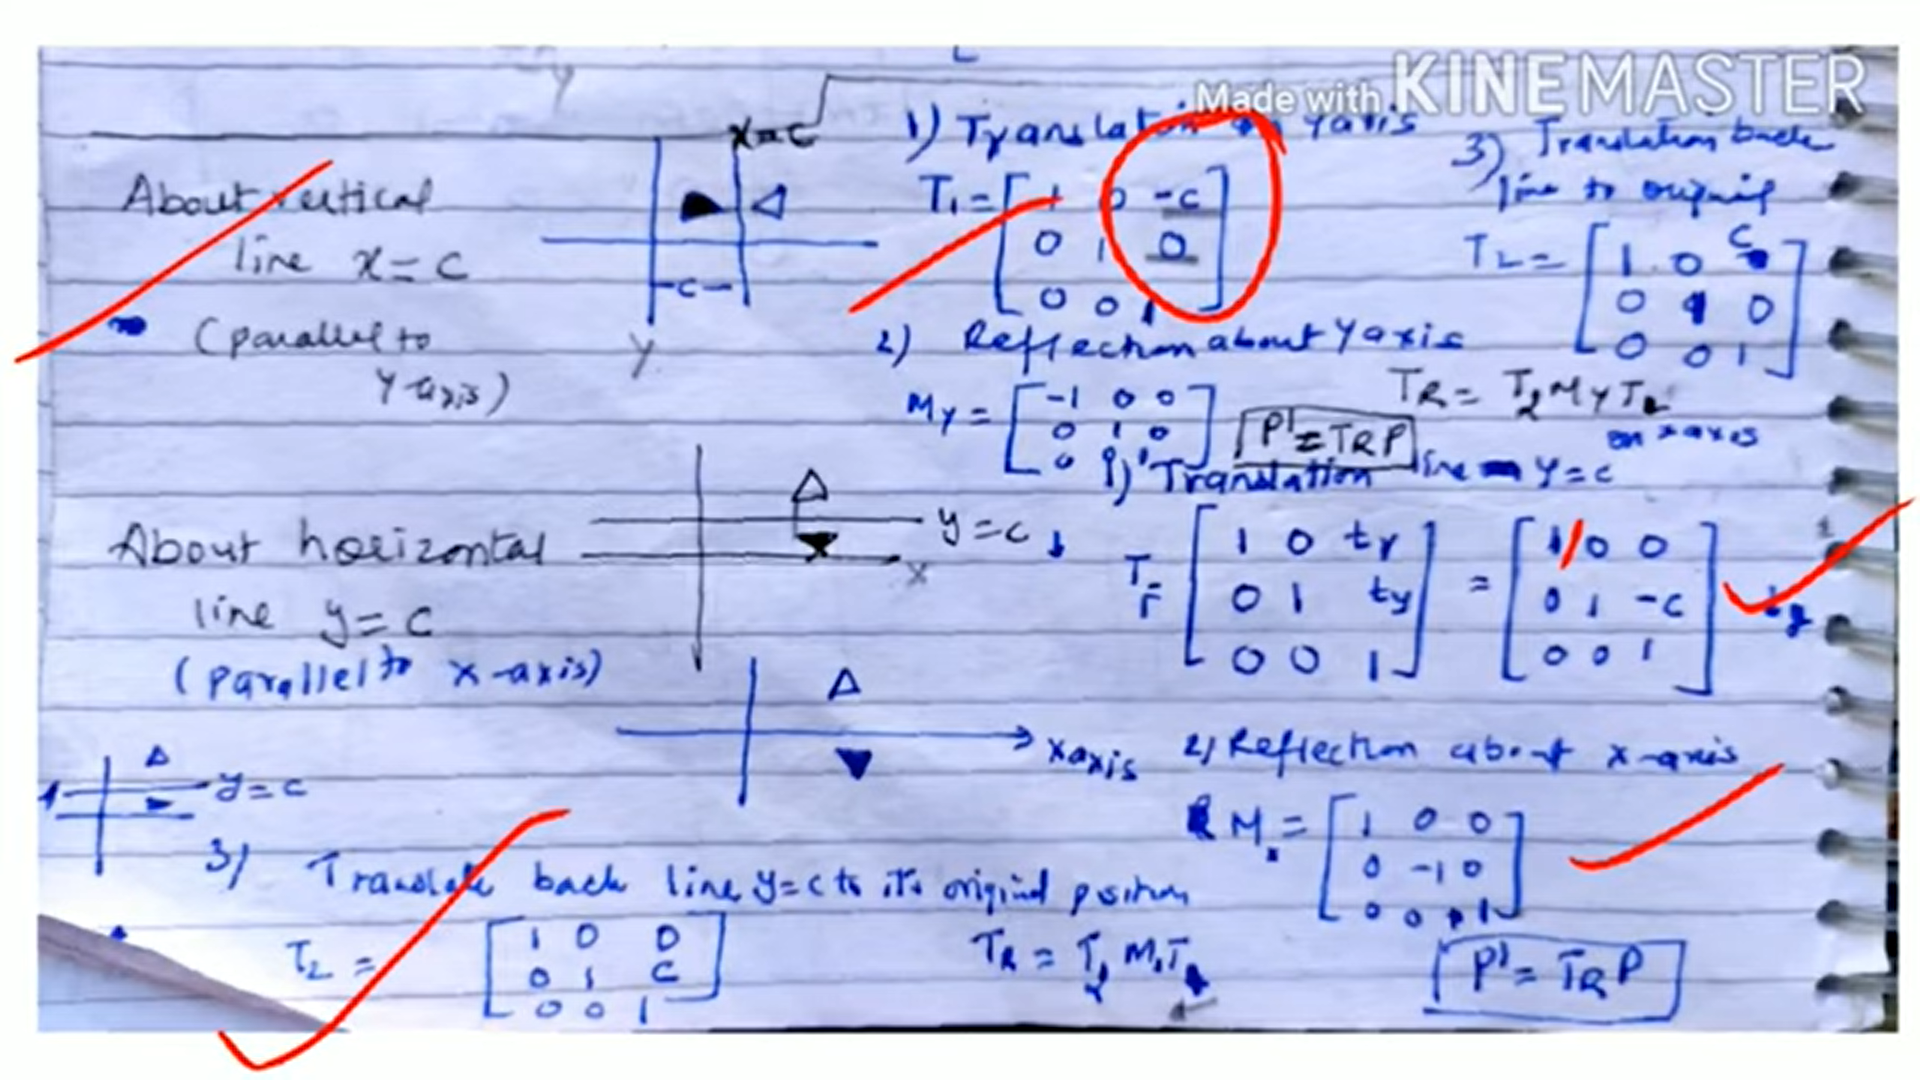 Made with KINEMASTER
x=c
About vertical
line x=c
(parallel to
Y-axis)
c
Y
1) Translation on Yaxis
T1 = [ 1 0 -c
0 1 0
0 0 1 ]
2) Reflection about Y axis
My = [ -1 0 0
0 1 0
0
3) Translation back
line to original
T2 = [ 1 0 c
0 1 0
0 0 1 ]
TR = T2 My
P' = TR P
About horizontal
line y=c
(parallel to x-axis)
y=c
x
x axis
y=c
1) Translation line y=c
on x axis
T1 = [ 1 0 tx
0 1 ty
0 0 1 ] = [ 1 0 0
0 1 -c
0 0 1 ]
2) Reflection about x-axis
M = [ 1 0 0
0 -1 0
0 0 1 ]
3) Translate back line y=c to its original position
T2 = [ 1 0 0
0 1 c
0 0 1 ]
TR = T2 M
P' = TR P